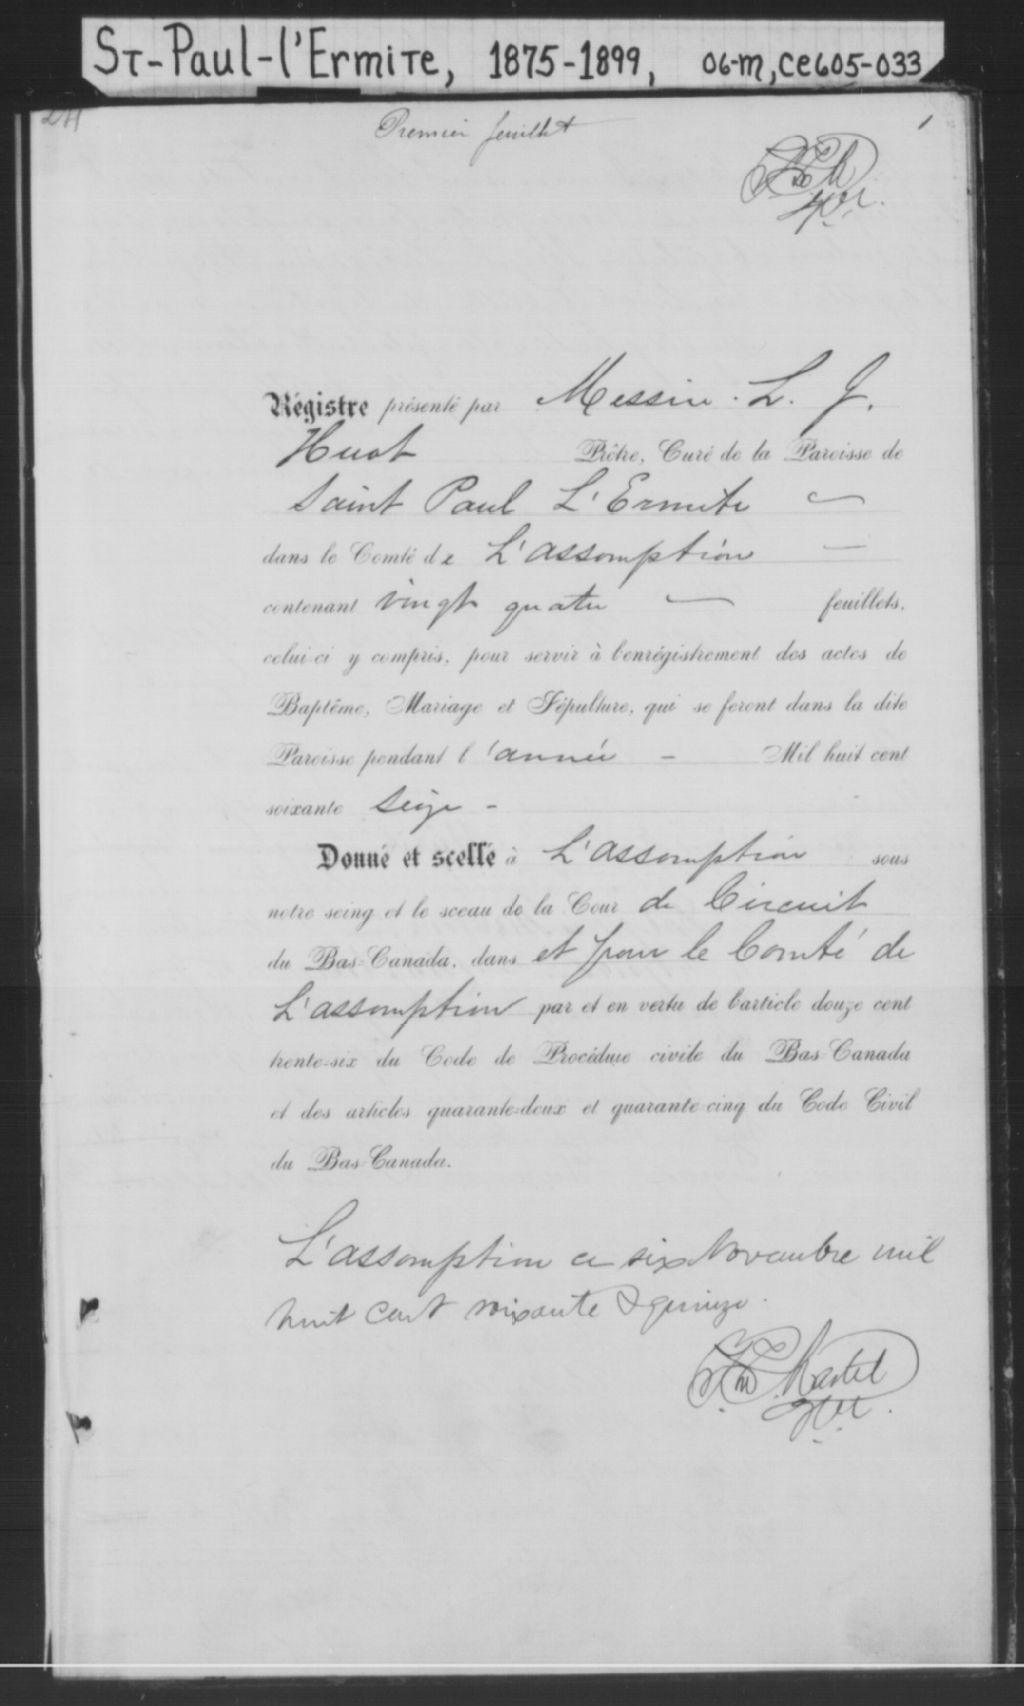 ST-Paul-l'Ermite, 1875-1899, 06-M,CE605-033
24
Premier feuillet
1
Régistre présenté par Messire. L. J.
Huot Prêtre, Curé de la Paroisse de
Saint Paul L'Ermite
dans le Comté de L'assomption —
contenant vingt quatre — feuillets,
celui-ci y compris, pour servir à l'enrégistrement des actes de
Baptême, Mariage et Sépulture, qui se feront dans la dite
Paroisse pendant l'année - Mil huit cent
soixante Seize -
Donné et scellé à L'assomption sous
notre seing et le sceau de la Cour de Circuit
du Bas-Canada, dans et pour le Comté de
L'assomption par et en vertu de l'article douze cent
trente-six du Code de Procédure civile du Bas-Canada
et des articles quarante-deux et quarante-cinq du Code Civil
du Bas-Canada.
L'assomption ce six Novembre mil
huit cent soixante & quinze.
Martel